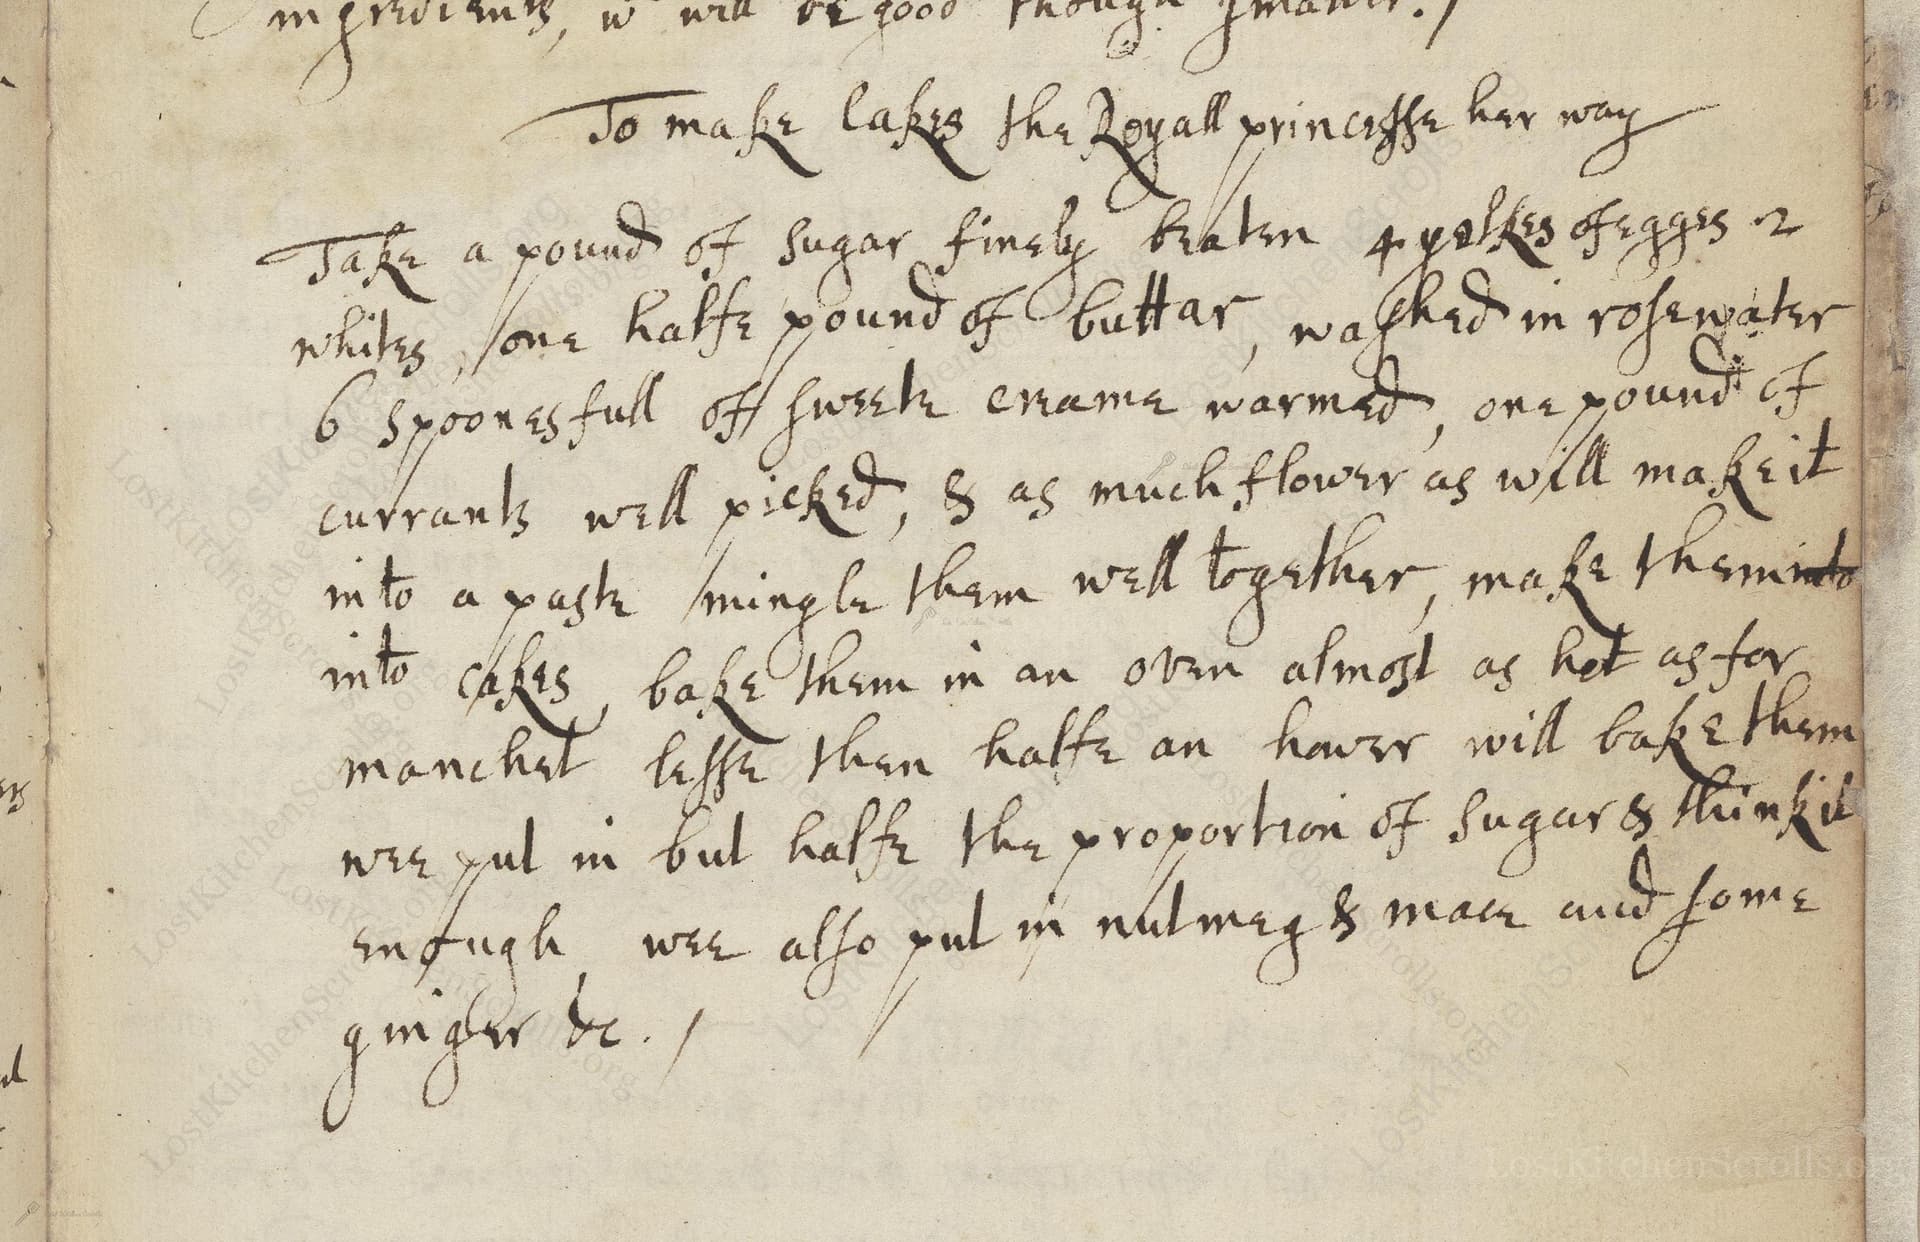 ingredients, wch will be good though smaller./
To make Cakes the Royall princesse her way
Take a pound of sugar finely beaten 4 yelkes of egges 2
whites, one halfe pound of buttar, washed in rosewater
6 spoonesfull of sweete creame warmed, one pound of
currants well picked, & as much flower as will make it
into a paste mingle them well together, make them into
into cakes, bake them in an oven almost as hot as for
manchet lesse then halfe an hower will bake them
wee put in but halfe the proportion of sugar & think it
enough, wee also put in nutmeg & mace and some
ginger &c./
LostKitchenScrolls.org